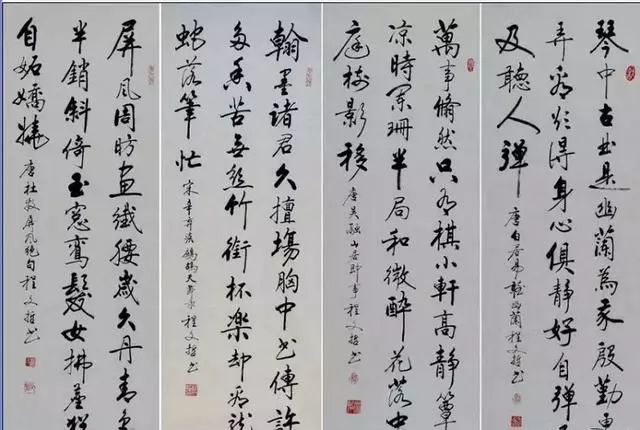 琴中古曲是幽蘭為我殷勤更
弄看欲得身心俱靜好自彈
及聽人彈
唐白居易聽幽蘭程文哲書
萬事翛然只有棋小軒高靜簟
涼時闌珊半局和微醉花落中
庭樹影移
唐吳融山居即事程文哲書
翰墨諸君久擅場胸中書傳許
多香苦無絲竹銜杯樂却看龍
蛇落筆忙
宋辛棄疾鷓鴣天程文哲書
屏風周昉畫纖腰歲久丹青色
半銷斜倚玉窓鸞髮女拂塵猶
自妬嬌嬈
唐杜牧屏風絕句程文哲書